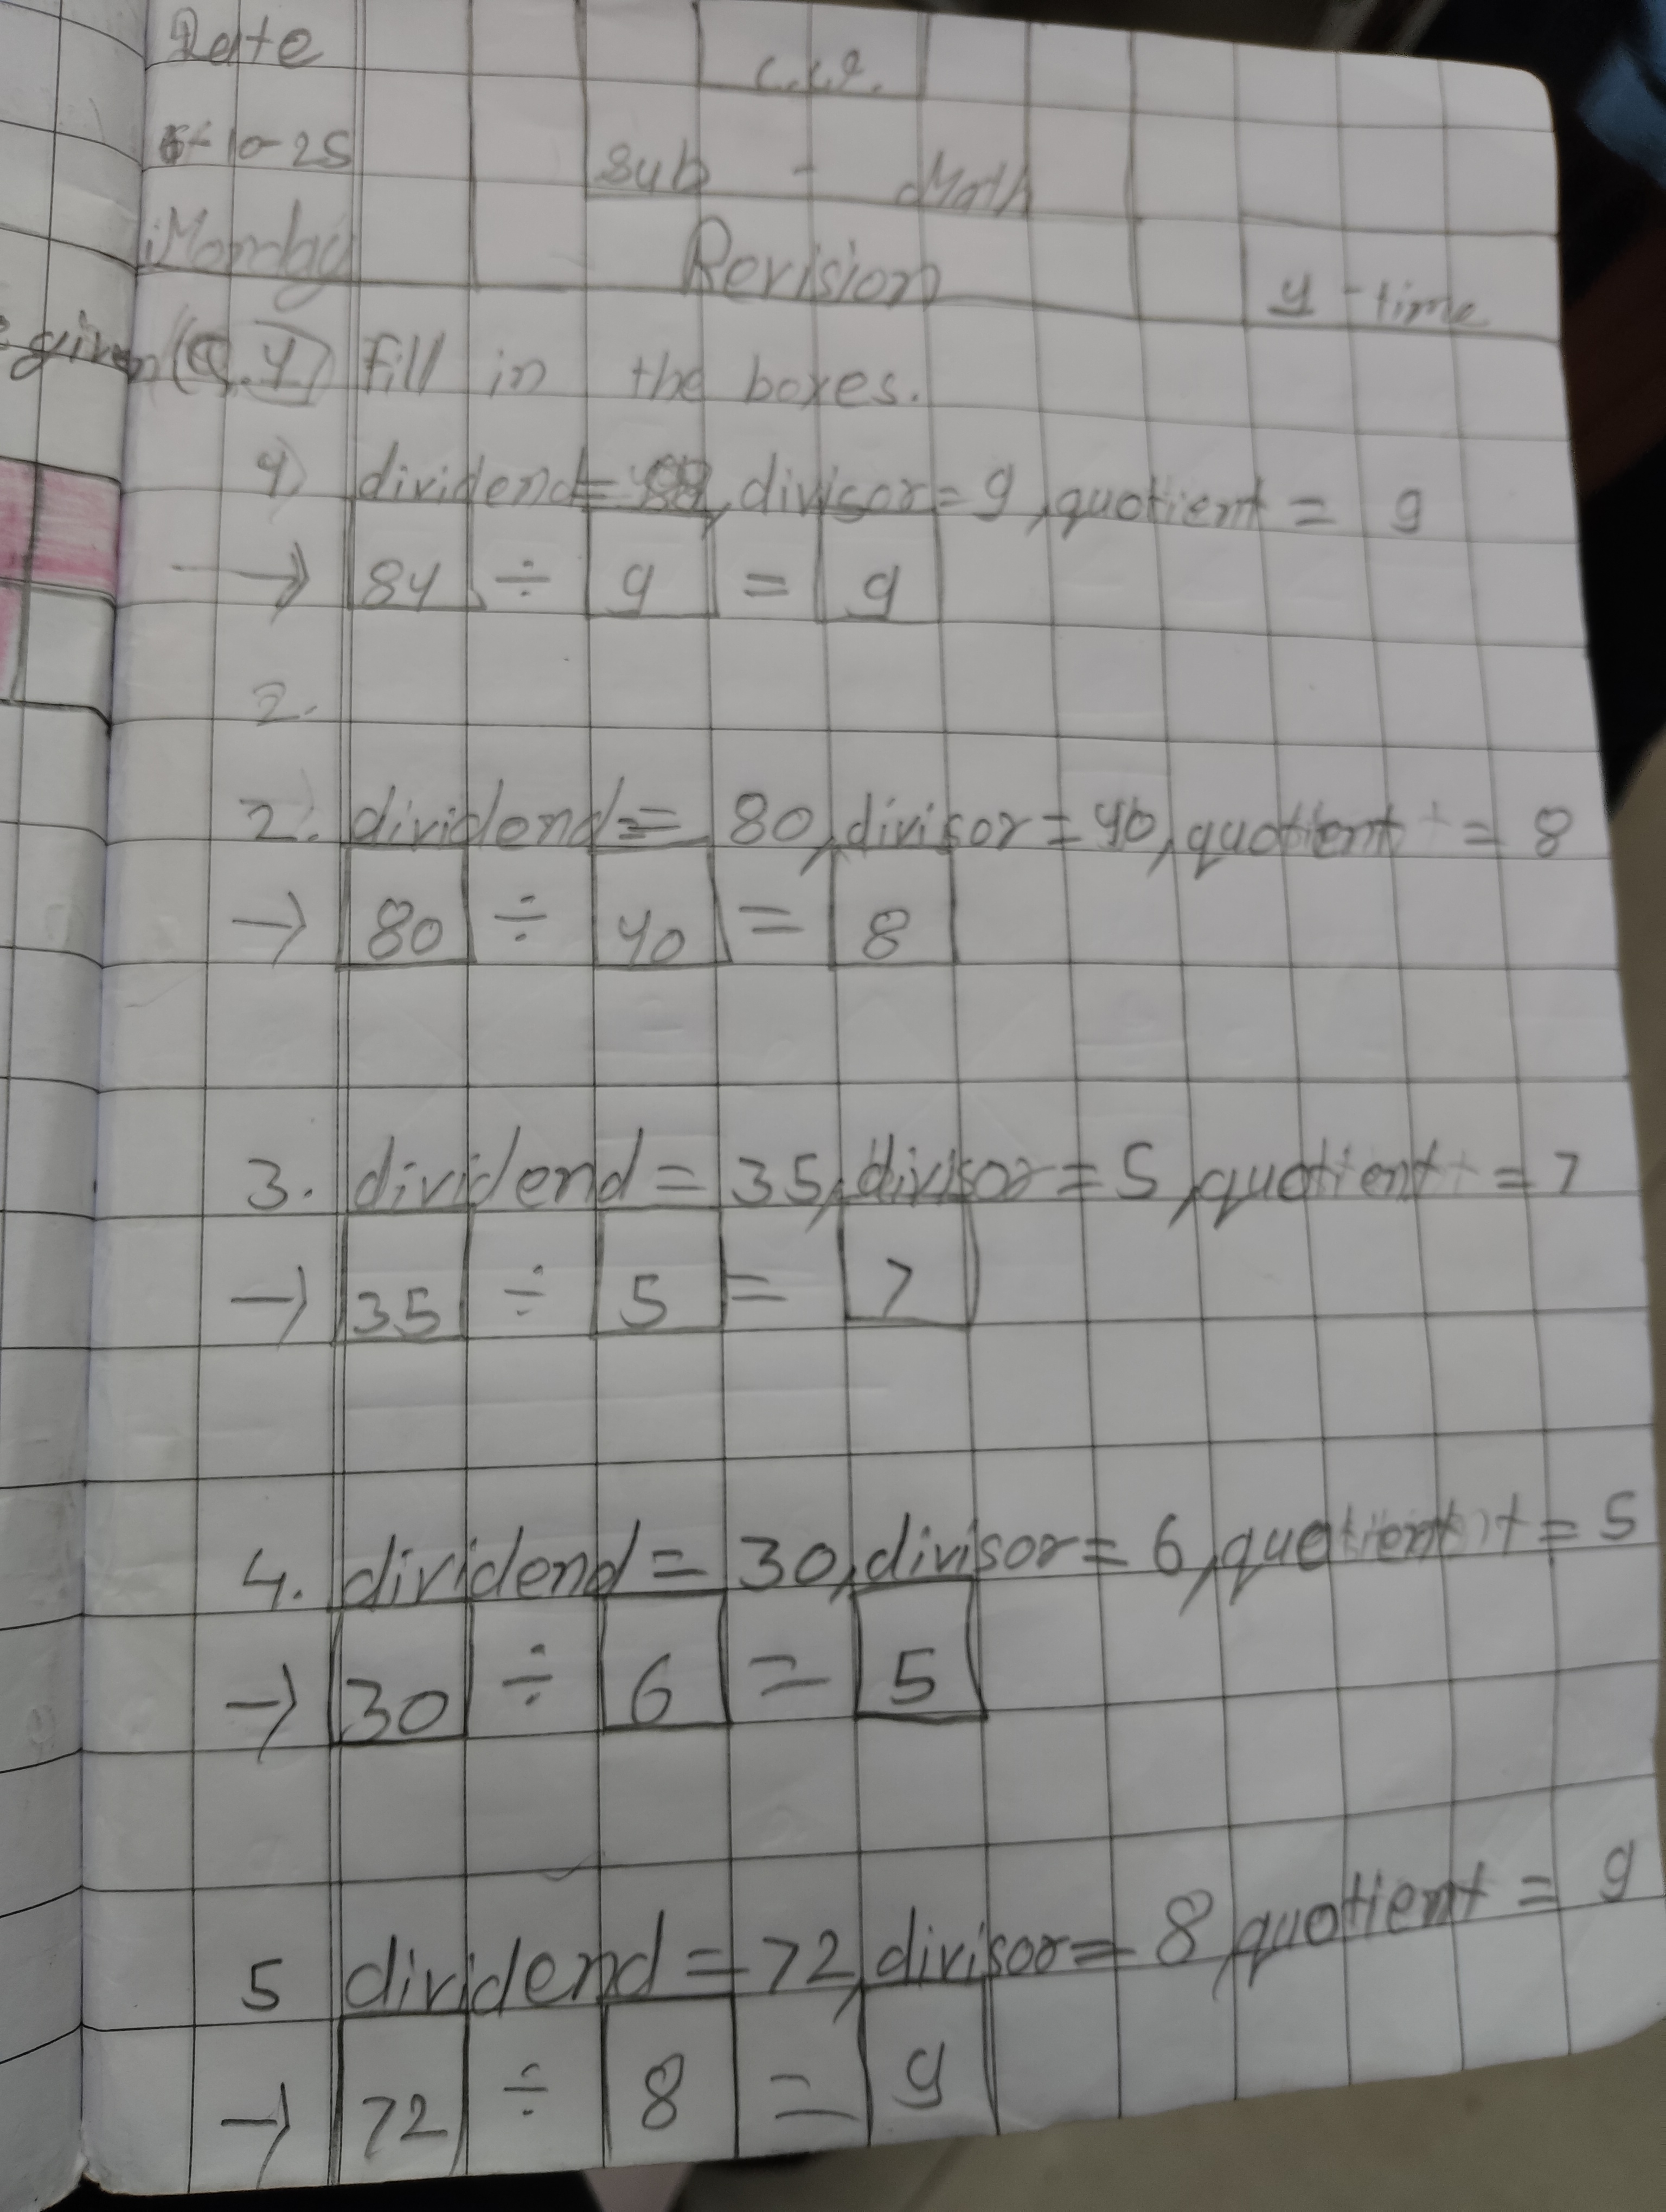 Date
C.C.P.
6-10-25
Sub - Math
Monday
Revision
y - time
given
(Q.Y) Fill in the boxes.
1) dividend= , divisor= 9, quotient = 9
→ 84 ÷ 9 = 9
2.
2. dividend= 80, divisor= 40, quotient = 8
→ 80 ÷ 40 = 8
3. dividend = 35, divisor = 5, quotient = 7
→ 35 ÷ 5 = 7
4. dividend = 30, divisor = 6, quotient = 5
→ 30 ÷ 6 = 5
5 dividend = 72, divisor = 8, quotient = 9
→ 72 ÷ 8 = 9